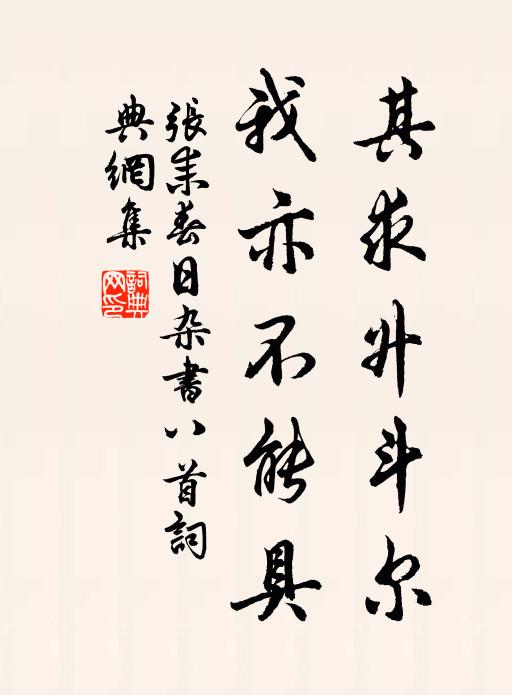 其求升斗尔
我亦不能具
張耒春日杂書八首詞
典網集
詞典
网印